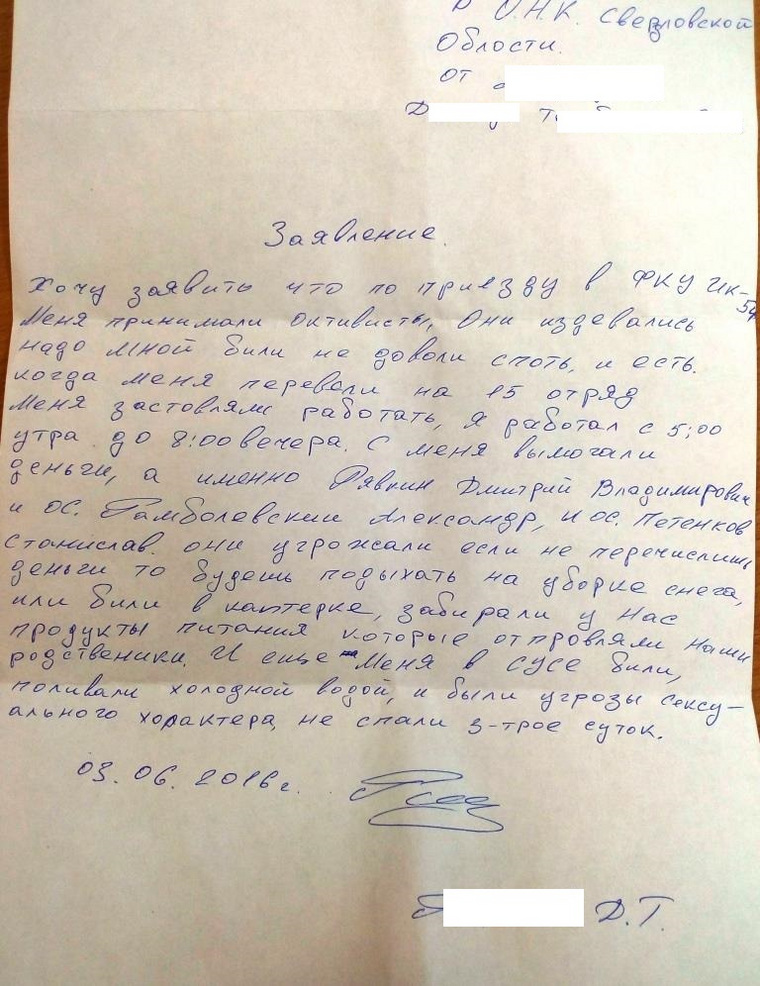 В О.Н.К. Свердловской
Области.
от
Д Т
Заявление.
Хочу заявить что по приезду в ФКУ ИК-54
Меня принимали активисты, Они издевались
надо мной били не давали спать, и есть.
когда меня перевели на 15 отряд
меня заставляли работать, Я работал с 5:00
утра до 8:00 вечера. С меня вымогали
деньги, а именно Рявкин Дмитрий Владимирович
и ос. Гамболевский Александр, и ос. Петенков
Станислав. они угрожали если не перечислишь
деньги то будешь подыхать на уборке снега,
или били в каптерке, забирали у нас
продукты питания которые отправляли наши
родственики. И еще меня в СУСе били,
поливали холодной водой, и были угрозы сексу-
ального характера, не спали 3-трое суток.
03.06.2016г.
Д.Т.